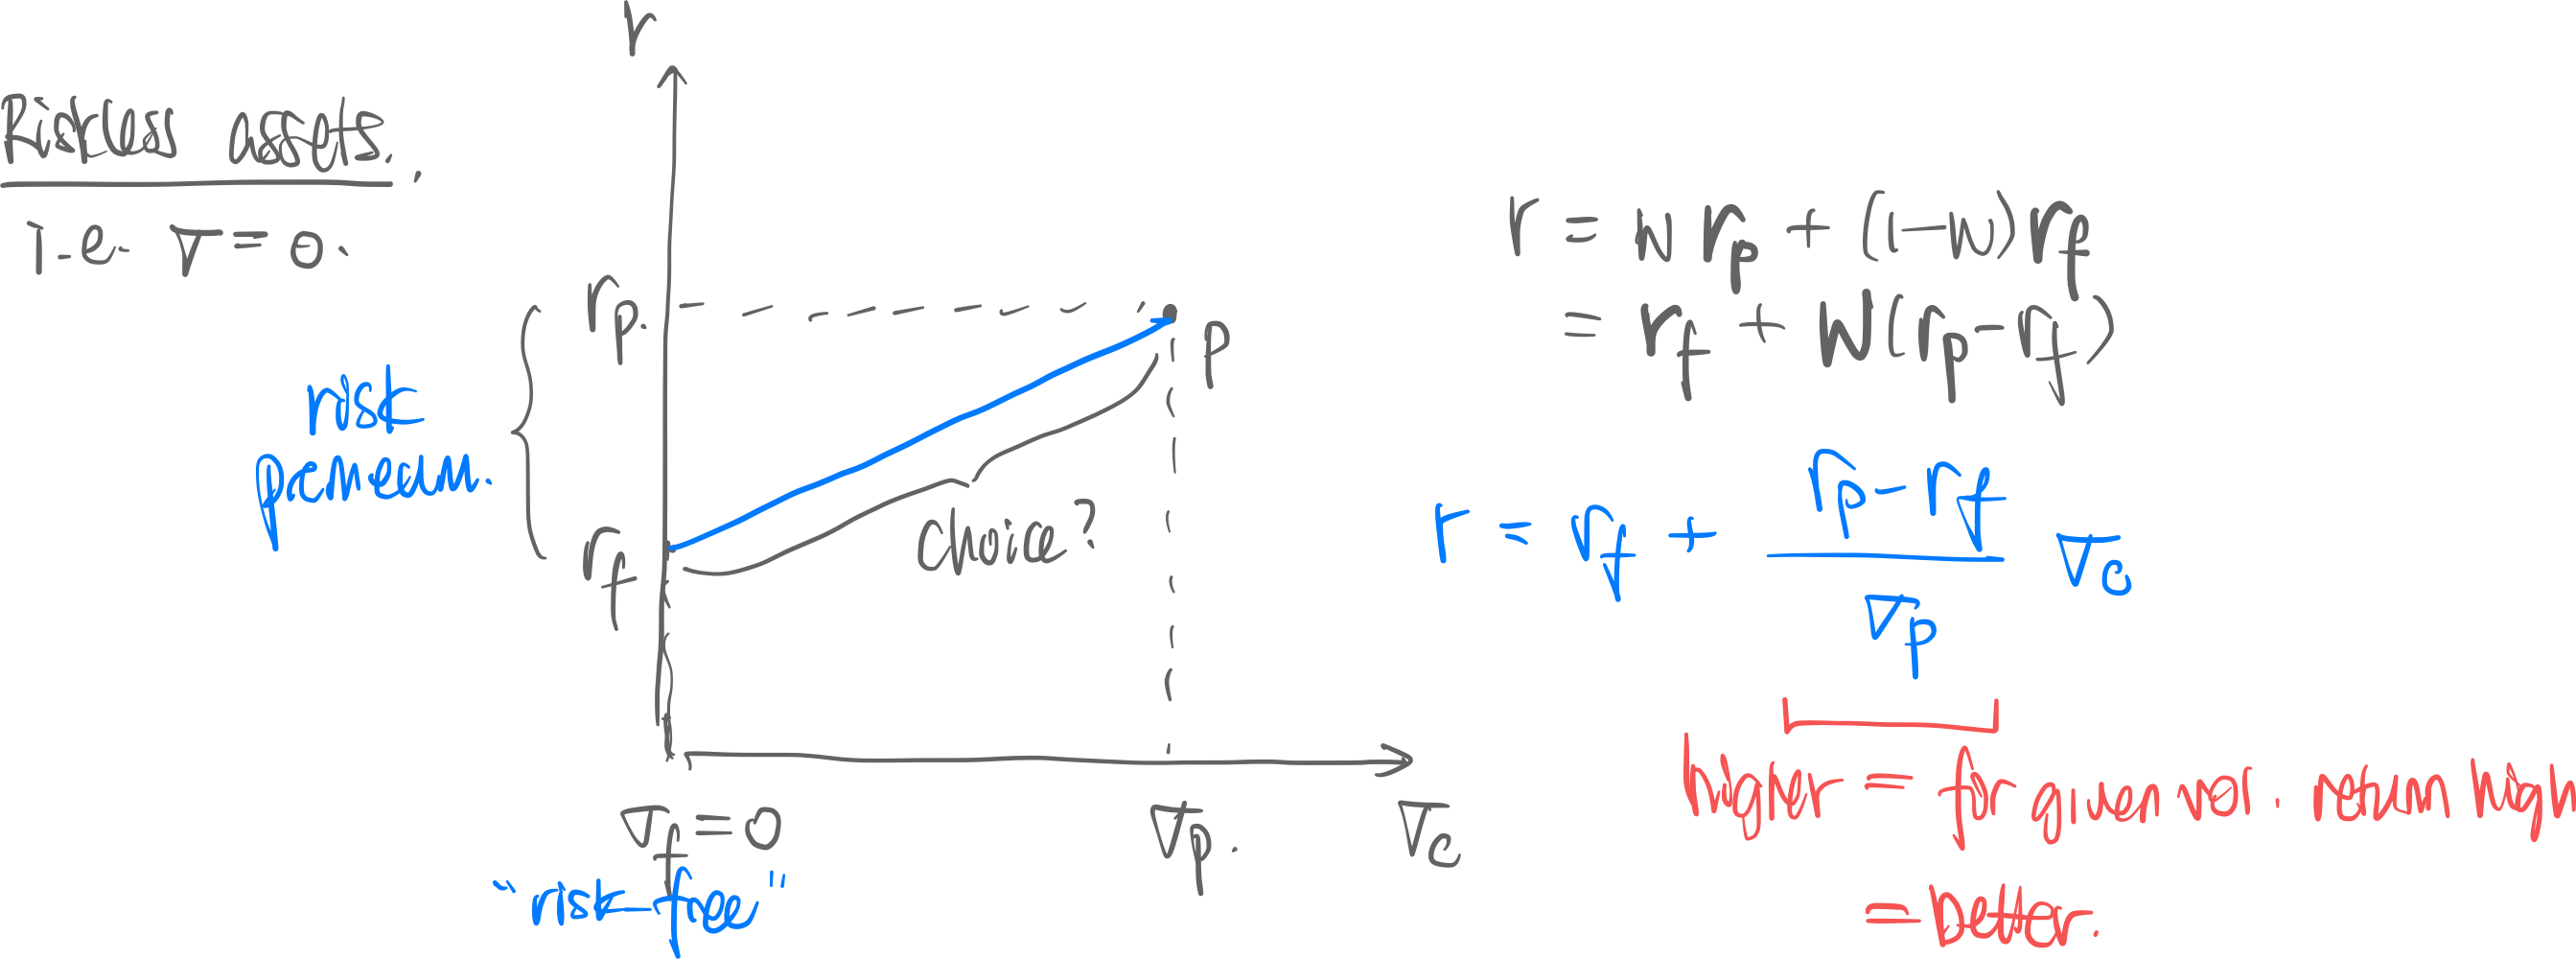 Riskless assets.
i.e. σ = 0.
r
r_p.
risk
r_f
p
choice?
σ_f = 0
"risk-free"
σ_p.
σ_c
r = w r_p + (1-w) r_f
= r_f + w(r_p - r_f)
r = r_f + \frac{r_p - r_f}{σ_p} σ_c
higher = for given vol. return high
= better.